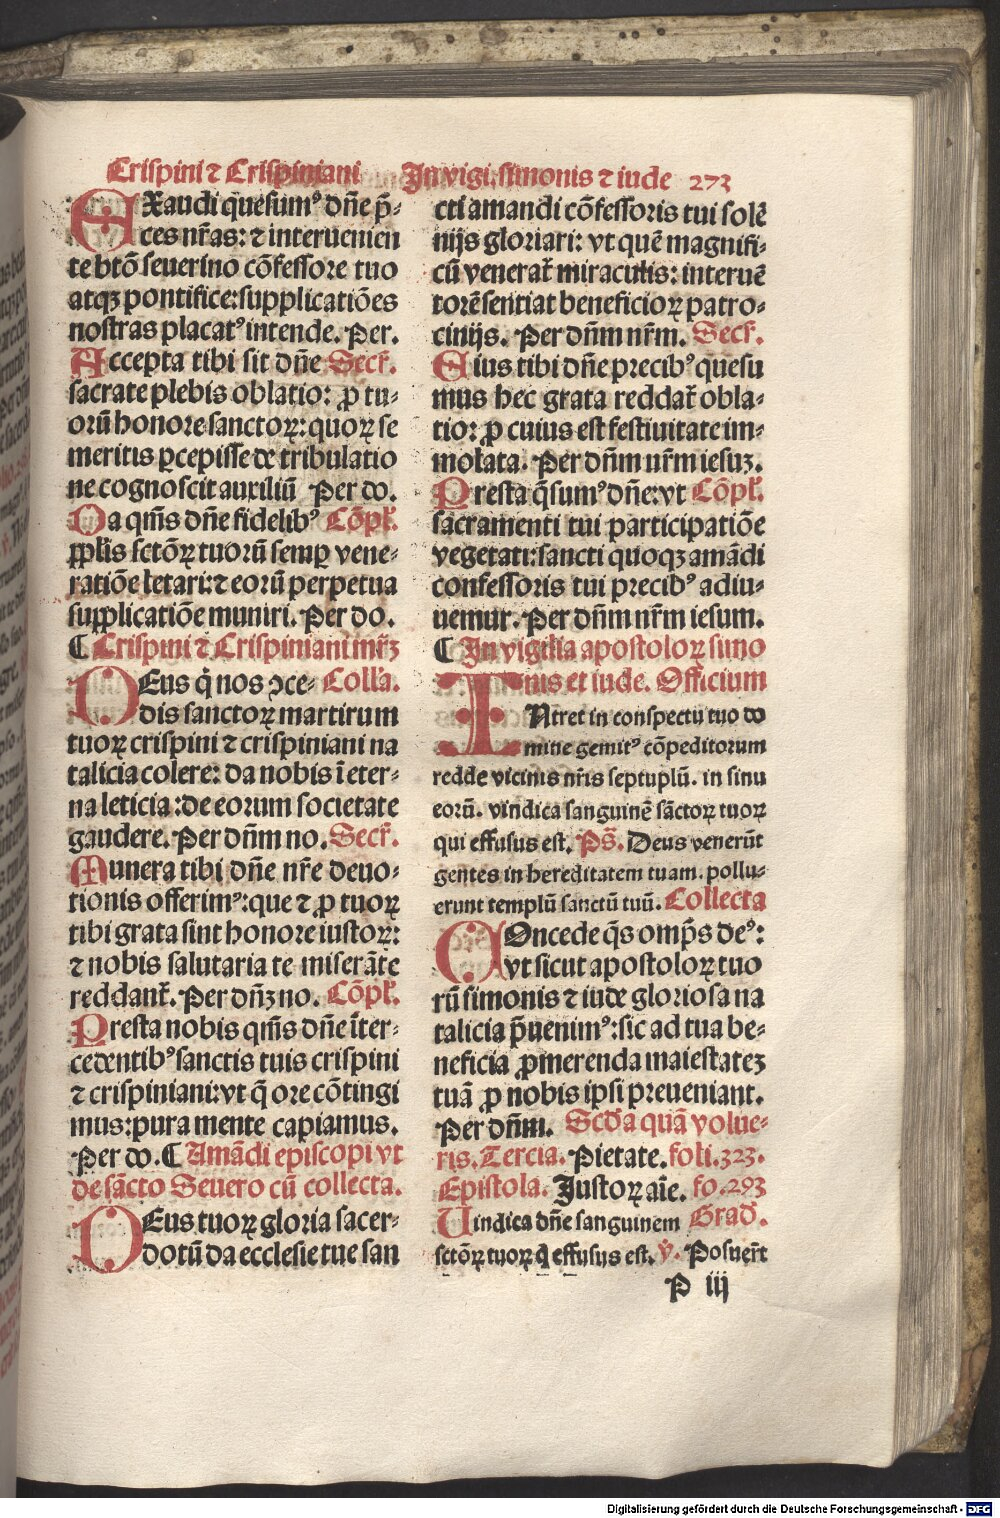 Crispini ⁊ Crispiniani In vigi. simonis ⁊ iude 273
EXaudi quesumꝰ dn̄e p̄-
ces nr̄as: ⁊ interuenien
te btō seuerino cōfessore tuo
atqꝫ pontifice: supplicatiōes
nostras placatꝰ intende. Per.
Accepta tibi sit dn̄e Secr̄.
sacrate plebis oblatio: ꝓ tu-
orū honore sanctoꝝ: quoꝝ se
meritis ꝑcepisse de tribulatio
ne cognoscit auxiliū Per do.
Da qm̄s dn̄e fidelibꝰ Cōpl̄.
ppl̄is sctōꝝ tuorū semꝑ vene-
ratiōe letari: ⁊ eorū perpetua
supplicatiōe muniri. Per do.
¶ Crispini ⁊ Crispiniani mr̄ꝫ
DEus q̇ nos ꝯce- Coll'a.
dis sanctoꝝ martirum
tuoꝝ crispini ⁊ crispiniani na
talicia colere: da nobis ī eter-
na leticia: de eorum societate
gaudere. Per dn̄m no. Secr̄.
Munera tibi dn̄e nr̄e deuo-
tionis offerimꝰ: que ⁊ ꝓ tuoꝝ
tibi grata sint honore iustoꝝ:
⁊ nobis salutaria te miserāte
reddant̄. Per dn̄ꝫ no. Cōpl̄.
Presta nobis qm̄s dn̄e īter-
cedentibꝰ sanctis tuis crispini
⁊ crispiniani: vt q̄ ore cōtingi
mus: pura mente capiamus.
Per do. ¶ Amādi episcopi vt
de sācto Seuero cū collecta.
DEus tuoꝝ gloria sacer-
dotū da ecclesie tue san
cti amandi cōfessoris tui solē
nijs gloriari: vt quē magnifi-
cū venerat̄ miraculis: interuē
torē sentiat beneficioꝝ patro-
cinijs. Per dn̄m nr̄m. Secr̄.
Eius tibi dn̄e precibꝰ quesu
mus hec grata reddat̄ obla-
tio: ꝓ cuius est festiuitate im-
molata. Per dn̄m nr̄m iesuꝫ.
Presta q̄sumꝰ dn̄e: vt Cōpl̄.
sacramenti tui participatiōe
vegetati: sancti quoqꝫ amādi
confessoris tui precibꝰ adiu-
uemur. Per dn̄m nr̄m iesum.
¶ In vigilia apostoloꝝ simo
nis et iude. Officium
INtret in conspectu tuo do
mine gemitꝰ cōpeditorum
redde vicinis nr̄is septuplū. in sinu
eorū. vindica sanguinē sāctoꝝ tuoꝝ
qui effusus est. Ps̄. Deus venerūt
gentes in hereditatem tuam. pollu-
erunt templū sanctū tuū. Collecta
COncede q̄s omp̄s deꝰ:
vt sicut apostoloꝝ tuo
rū simonis ⁊ iude gloriosa na
talicia p̄uenimꝰ: sic ad tua be-
neficia ꝓmerenda maiestateꝫ
tuā ꝓ nobis ipsi preueniant.
Per dn̄m. Scd̄a quā volue-
ris. Tercia. Pietate. foli. 323.
Epistola. Justoꝝ aīe. fo. 293
Uindica dn̄e sanguinem Grad̄.
sctōꝝ tuoꝝ q̇ effusus est. v̄. Posuer̄t
P iij
Digitalisierung gefördert durch die Deutsche Forschungsgemeinschaft - DFG